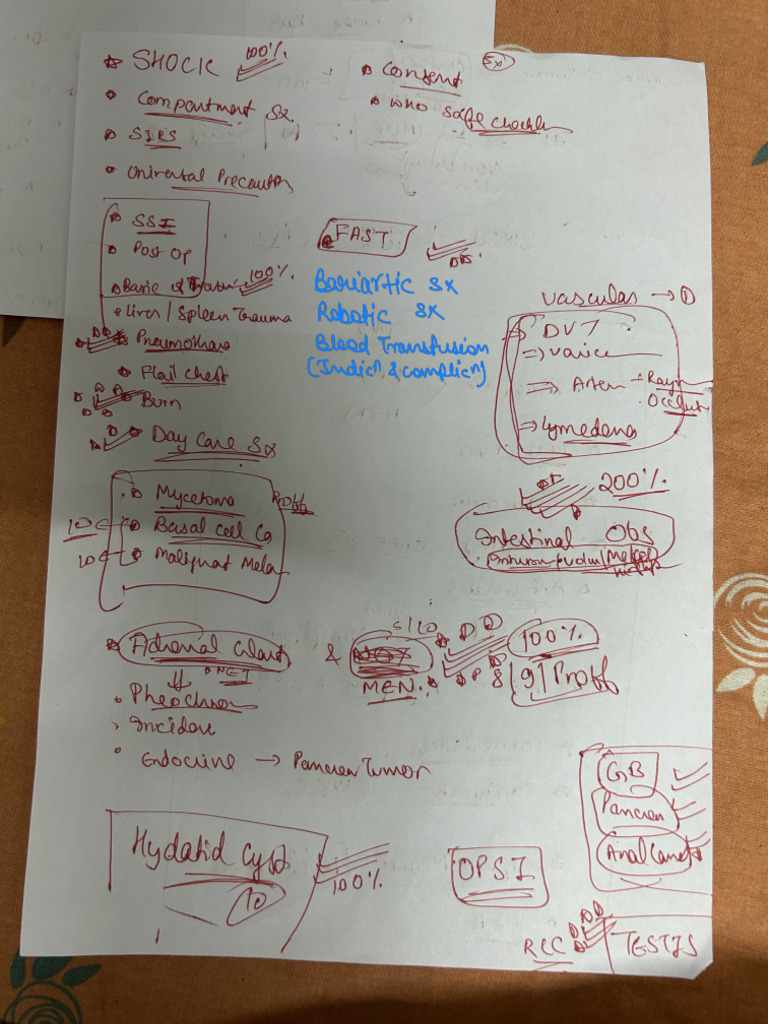 Sx
SHOCK 100%
Consent
Compartment Sx.
WHO Safe Checkli
SIRS
Universal Precaution
SSI
Post Op
FAST
Basic of Trauma 100%
Liver / Spleen Trauma
Bariartic Sx
Robotic Sx
Blood Transfusion
(Indicⁿ & complicⁿ)
Vascular →
DVT
⇒ Varice
⇒ Arter
Rayn
Occlus
⇒ Lymedema
Pneumothora
Flail Chest
Burn
Day Care Sx
200%
Mycetoma Proff
10 Basal cell Ca
10 Malignat Mela
Intestinal Obs
Meckel
Adrenal Gland & MEN. 100%
8/9/Proff
Pheochrom
Inciden
Endocrine → Pancrea Tumor
GB
Pancrea
Anal Canal
Hydatid Cyst 100%
10
OPSI
RCC
TESTIS